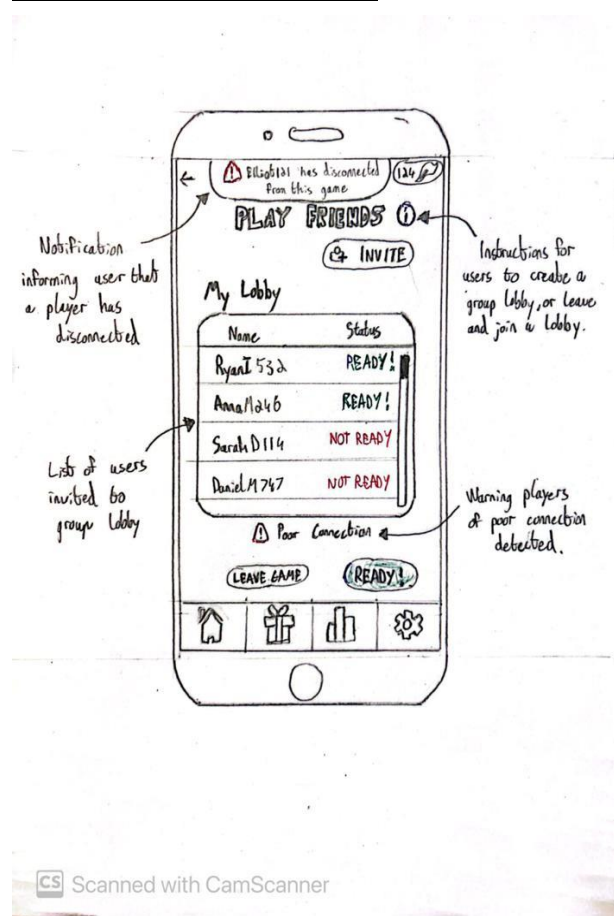 Elliot121 has disconnected
from this game
124
PLAY FRIENDS i
INVITE
Notification
informing user that
a player has
disconnected
Instructions for
users to create a
group lobby, or leave
and join a lobby.
My Lobby
Name Status
RyanI532 READY!
AnnaM246 READY!
SarahD114 NOT READY
DanielM747 NOT READY
List of users
invited to
group lobby
Poor Connection
Warning players
of poor connection
detected.
LEAVE GAME READY!
CS Scanned with CamScanner